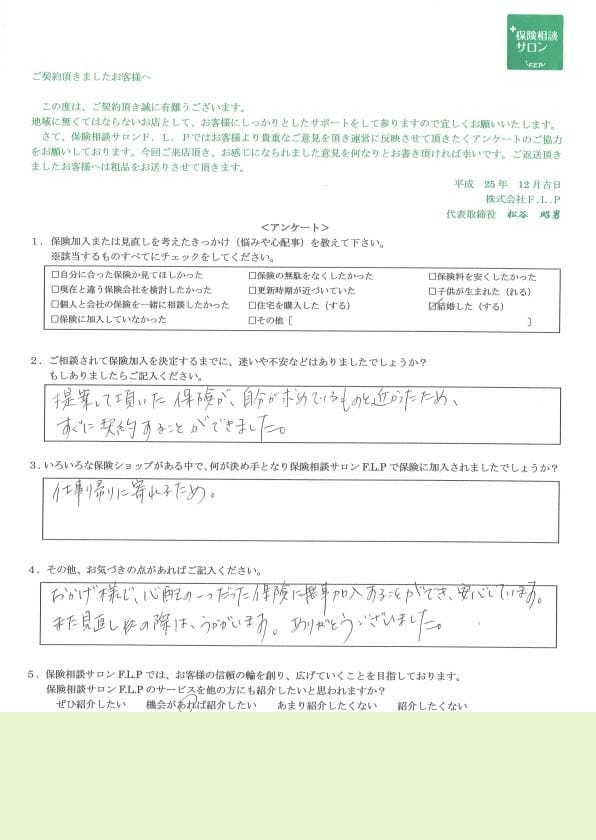 +保険相談
サロン
F.L.P
ご契約頂きましたお客様へ
この度は、ご契約頂き誠に有難うございます。
地域に無くてはならないお店として、お客様にしっかりとしたサポートをして参りますので宜しくお願いいたします。
さて、保険相談サロンF.L.Pではお客様より貴重なご意見を頂き運営に反映させて頂きたくアンケートのご協力
をお願いしております。今回ご来店頂き、お感じになられました意見を何なりとお書き頂ければ幸いです。ご返送頂き
ましたお客様へは粗品をお送りさせて頂きます。
平成 25年 12月吉日
株式会社F.L.P
代表取締役 松谷 昭男
＜アンケート＞
1．保険加入または見直しを考えたきっかけ（悩みや心配事）を教えて下さい。
※該当するものすべてにチェックをしてください。
□自分に合った保険か見てほしかった □保険の無駄をなくしたかった □保険料を安くしたかった
□現在と違う保険会社を検討したかった □更新時期が近づいていた □子供が生まれた（れる）
□個人と会社の保険を一緒に相談したかった □住宅を購入した（する） ☑結婚した（する）
□保険に加入していなかった □その他［ ］
2．ご相談されて保険加入を決定するまでに、迷いや不安などはありましたでしょうか？
もしありましたらご記入ください。
提案して頂いた保険が、自分が求めているものと近かったため、
すぐに契約することができました。
3．いろいろな保険ショップがある中で、何が決め手となり保険相談サロンF.L.Pで保険に加入されましたでしょうか？
仕事帰りに寄れるため。
4．その他、お気づきの点があればご記入ください。
おかげ様で、心配の一つだった保険に無事加入することができ、安心しています。
また見直し の際は、うかがいます。ありがとうございました。
5．保険相談サロンF.L.Pでは、お客様の信頼の輪を創り、広げていくことを目指しております。
保険相談サロンF.L.Pのサービスを他の方にも紹介したいと思われますか？
ぜひ紹介したい 機会があれば紹介したい あまり紹介したくない 紹介したくない